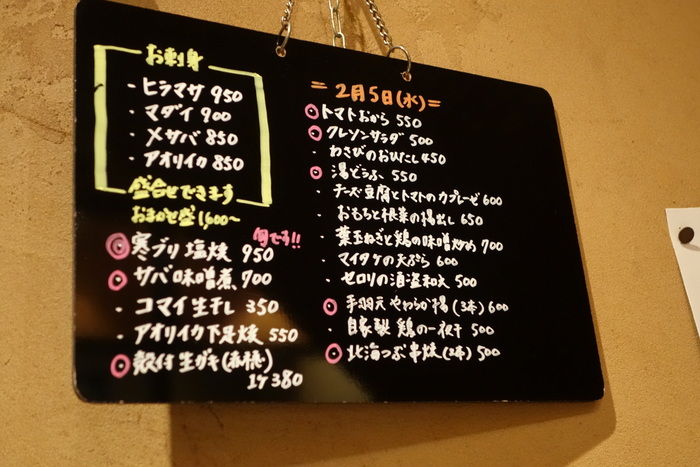 お刺身
・ヒラマサ 950
・マダイ 900
・〆サバ 850
・アオリイカ 850
盛合せできます
おまかせ盛1,600〜
旬です!!
寒ブリ 塩焼 950
サバ味噌煮 700
・コマイ生干し 350
・アオリイカ下足焼 550
殻付生ガキ(赤穂)
1ケ 380
=2月5日(水)=
トマトおから 550
クレソンサラダ 500
・わさびのおひたし 450
湯どうふ 550
・チーズ豆腐とトマトのカプレーゼ 600
・おもちと根菜の揚出し 650
・葉玉ねぎと鶏の味噌炒め 700
・マイタケの天ぷら 600
・セロリの 500
手羽元 やわらか揚(3本) 600
・自家製 鶏の一夜干 500
北海つぶ串焼(2本) 500